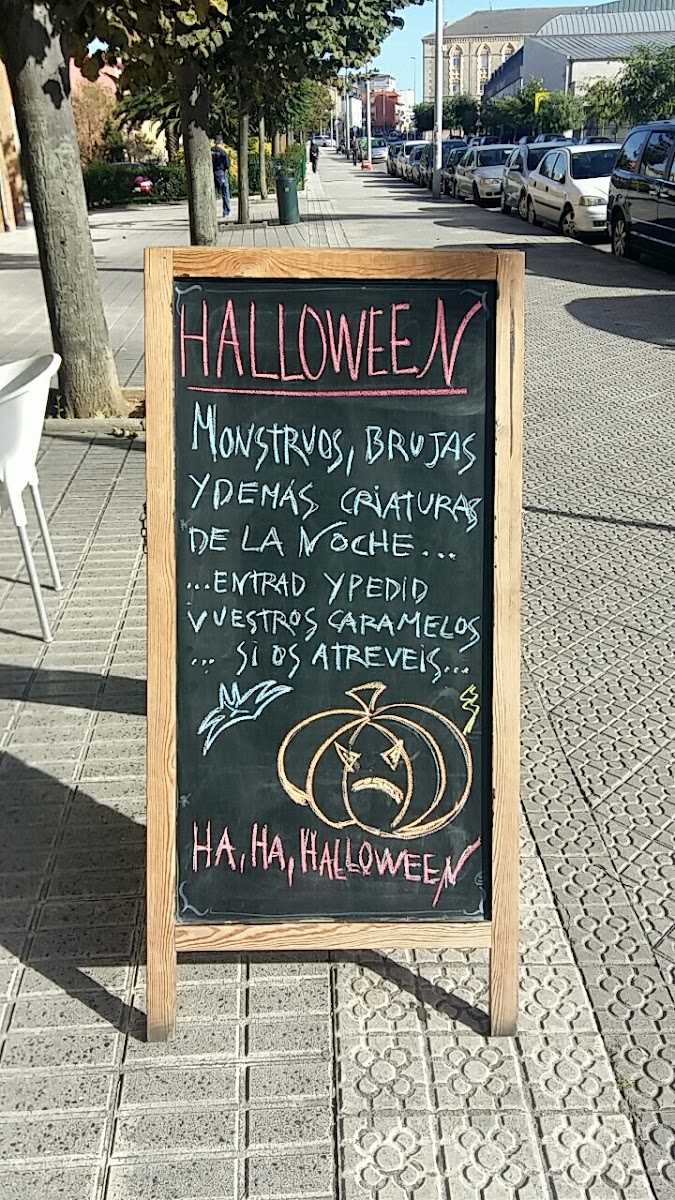 HALLOWEEN
MONSTRUOS, BRUJAS
Y DEMÁS CRIATURAS
DE LA NOCHE...
...ENTRAD Y PEDID
VUESTROS CARAMELOS
... SI OS ATREVEIS...
HA, HA, HALLOWEEN